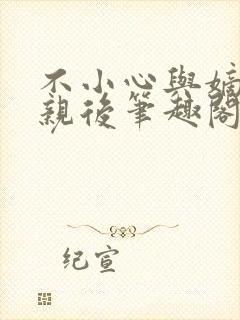 不小心與嫡
親後筆趣閣
纪宣